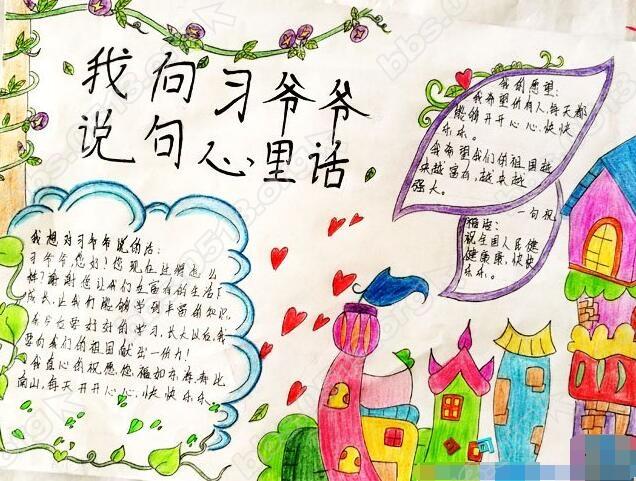 我向习爷爷
说句心里话
我的愿望:
我希望所有人每天都
能够开开心心、快快
乐乐。
我希望我们的祖国越
来越富有,越来越
强大。
一句祝
福语:
祝全国人民健
健康康,快快
乐乐。
我想对习爷爷说的话:
习爷爷,您好!您现在过得怎么
样?谢谢您让我们在富有的生活下
成长,让我们能够学到丰富的知识,
我今后要好好的学习,长大以后,我
要为我们的祖国献出一份力!
我在心的祝愿您福如东海寿比
南山,每天开开心心、快快乐乐。